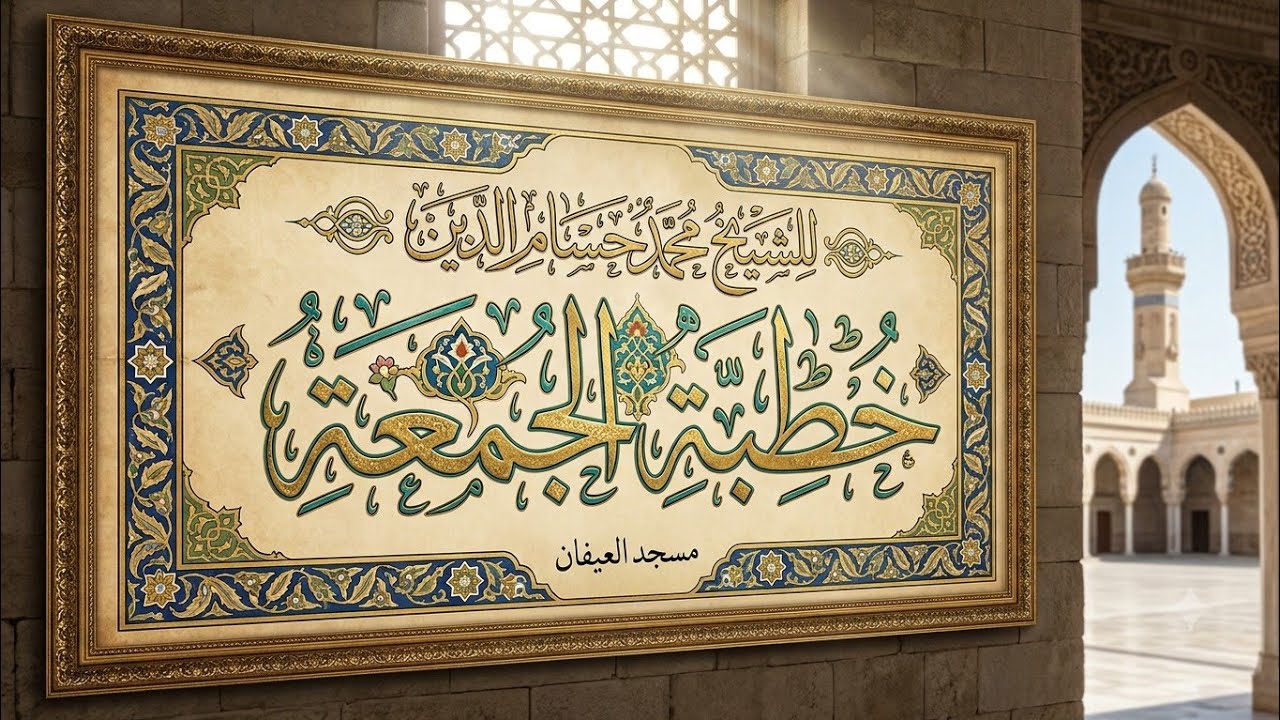 لِلشَّيْخُ مُحَمَّدُ حَسَامِ الدَّيْنَ
خُطِبَّةِ الجُمُعَةِ
مسجد العيفان